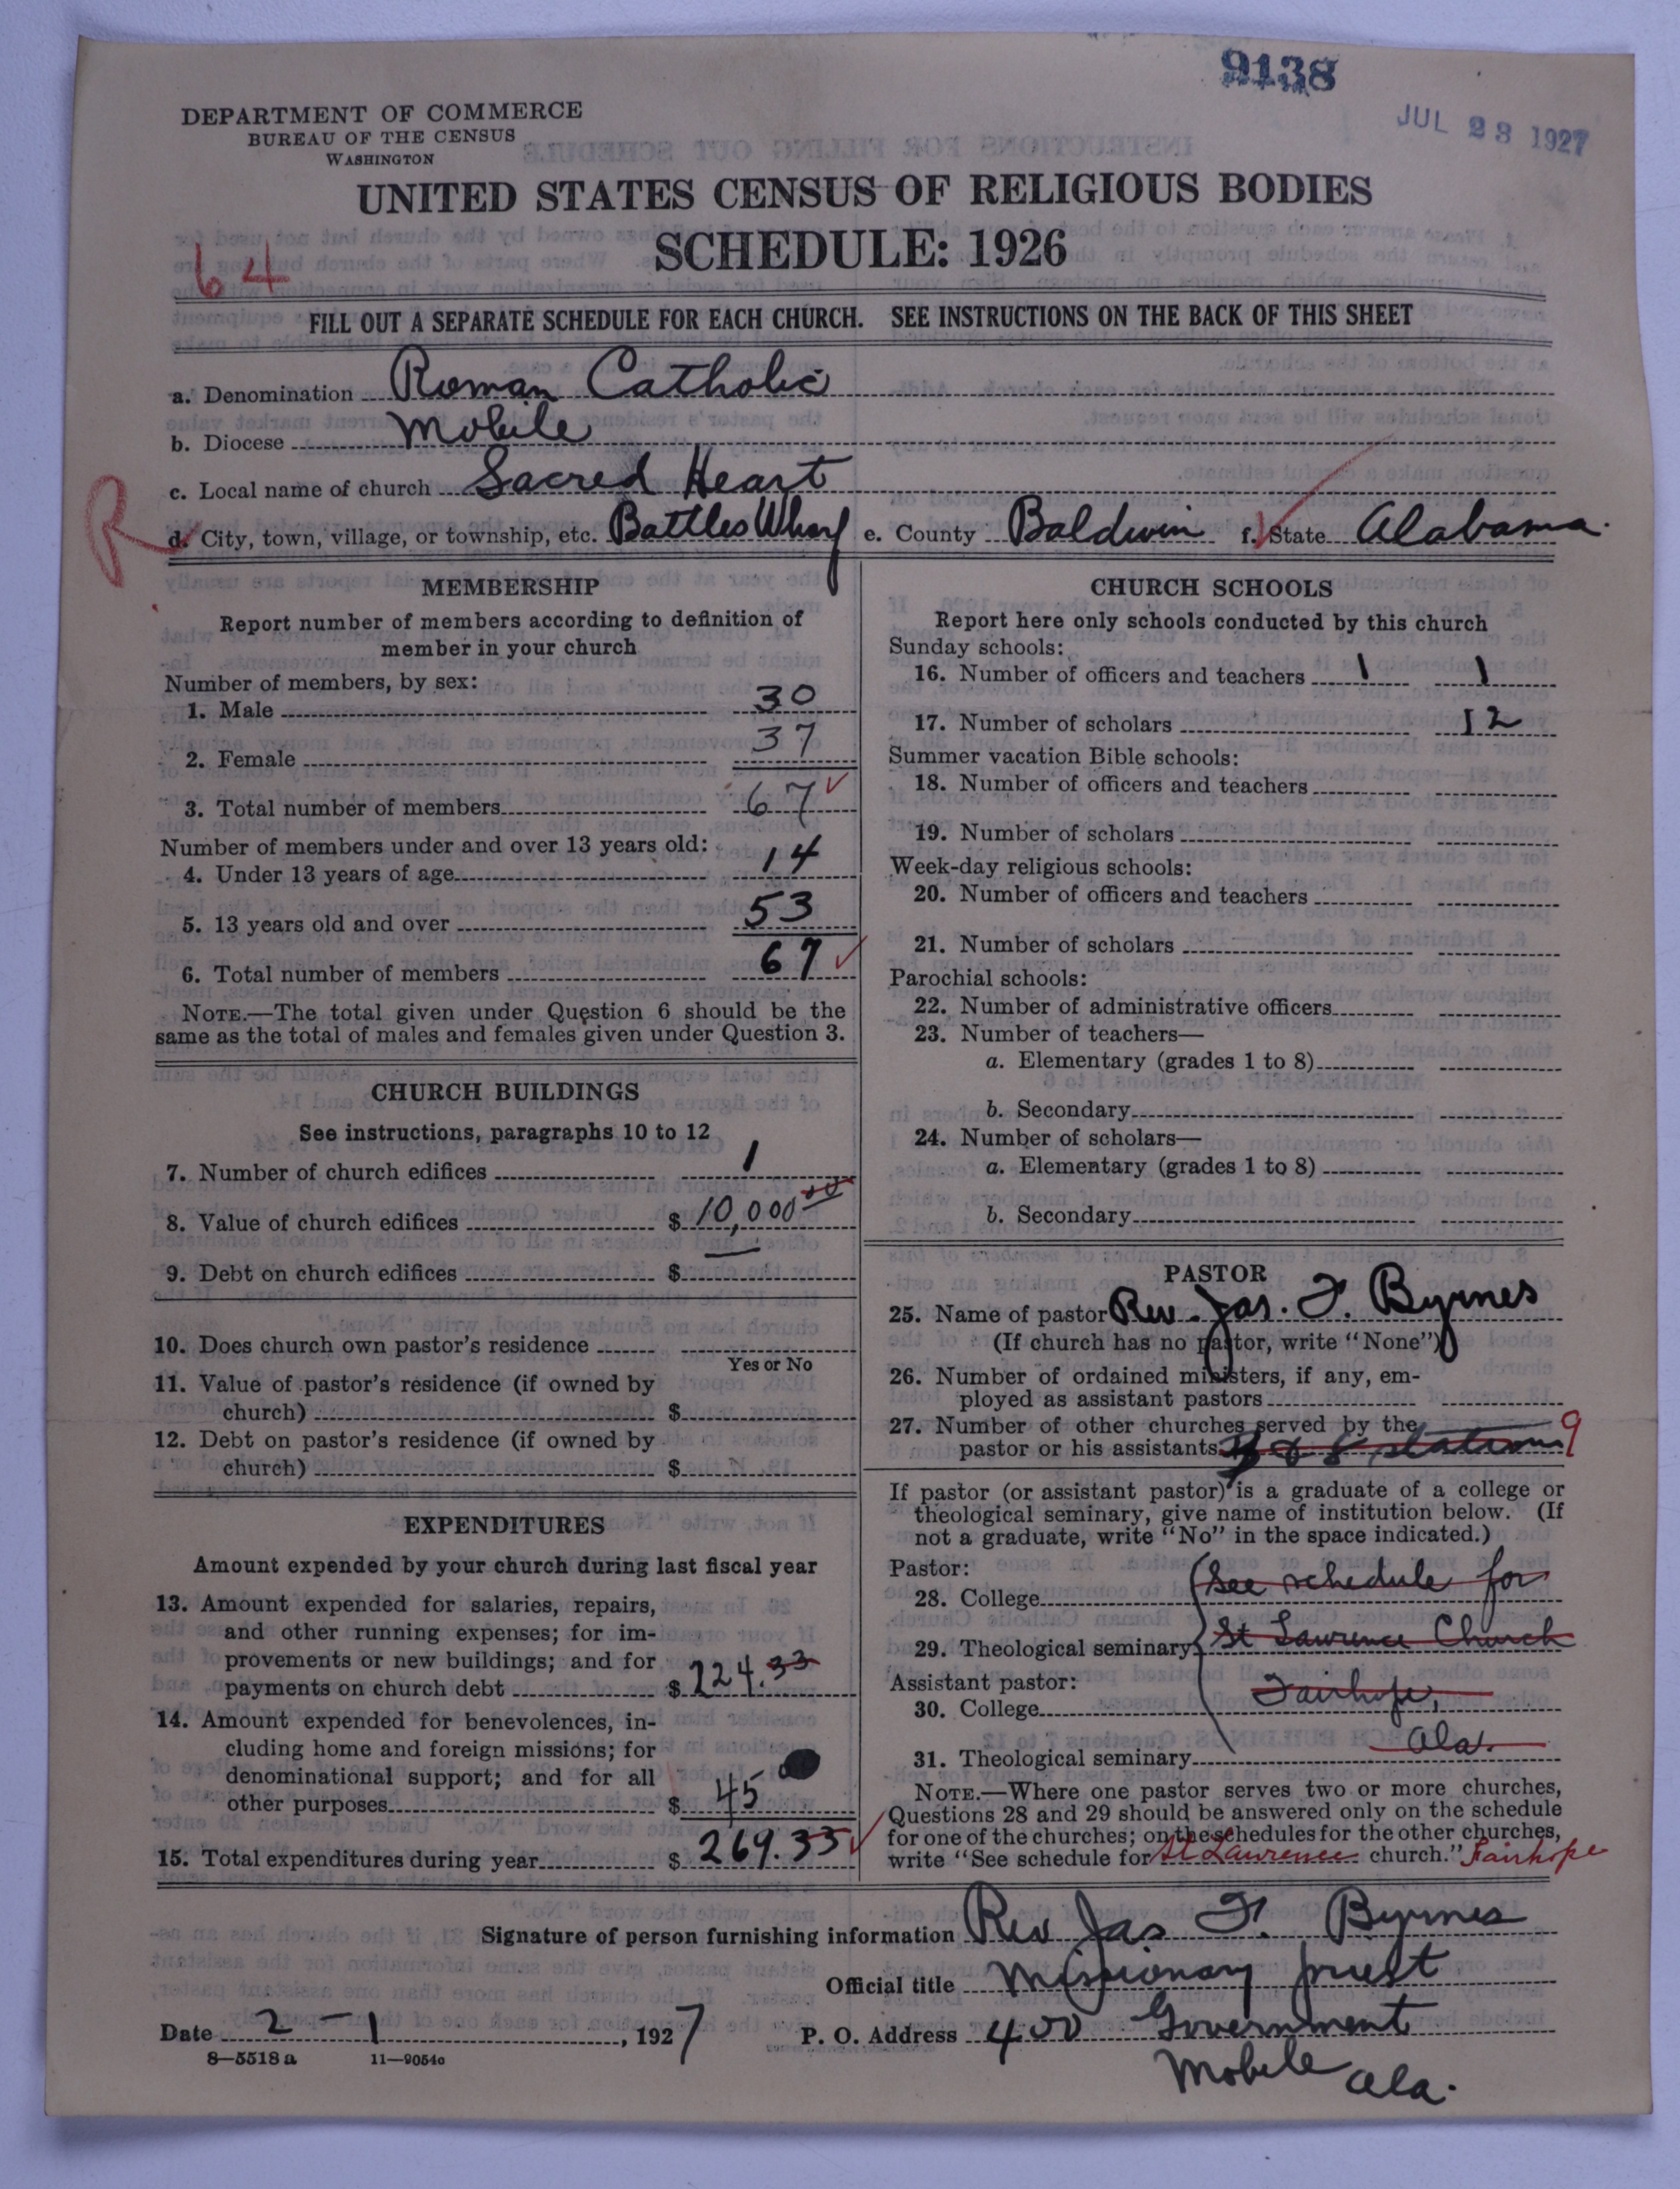 9138
JUL 23 1927
DEPARTMENT OF COMMERCE
BUREAU OF THE CENSUS
WASHINGTON
UNITED STATES CENSUS OF RELIGIOUS BODIES
SCHEDULE: 1926
64
FILL OUT A SEPARATE SCHEDULE FOR EACH CHURCH. SEE INSTRUCTIONS ON THE BACK OF THIS SHEET
a. Denomination Roman Catholic
b. Diocese Mobile
c. Local name of church Sacred Heart
R
d. City, town, village, or township, etc. Battles Wharf e. County Baldwin f. State Alabama.
MEMBERSHIP
Report number of members according to definition of
member in your church
Number of members, by sex:
1. Male 30
2. Female 37
3. Total number of members 67
Number of members under and over 13 years old:
4. Under 13 years of age 14
5. 13 years old and over 53
6. Total number of members 67
NOTE.—The total given under Question 6 should be the
same as the total of males and females given under Question 3.
CHURCH BUILDINGS
See instructions, paragraphs 10 to 12
7. Number of church edifices 1
8. Value of church edifices $ 10,000 00
9. Debt on church edifices $
10. Does church own pastor's residence
Yes or No
11. Value of pastor's residence (if owned by
church) $
12. Debt on pastor's residence (if owned by
church) $
EXPENDITURES
Amount expended by your church during last fiscal year
13. Amount expended for salaries, repairs,
and other running expenses; for im-
provements or new buildings; and for
payments on church debt $ 224.33
14. Amount expended for benevolences, in-
cluding home and foreign missions; for
denominational support; and for all
other purposes $ 45
15. Total expenditures during year $ 269.33
CHURCH SCHOOLS
Report here only schools conducted by this church
Sunday schools:
16. Number of officers and teachers 1 1
17. Number of scholars 12
Summer vacation Bible schools:
18. Number of officers and teachers
19. Number of scholars
Week-day religious schools:
20. Number of officers and teachers
21. Number of scholars
Parochial schools:
22. Number of administrative officers
23. Number of teachers—
a. Elementary (grades 1 to 8)
b. Secondary
24. Number of scholars—
a. Elementary (grades 1 to 8)
b. Secondary
PASTOR
25. Name of pastor Rev. Jas. F. Byrnes
(If church has no pastor, write "None")
26. Number of ordained ministers, if any, em-
ployed as assistant pastors
27. Number of other churches served by the
pastor or his assistants 8 stations 9
If pastor (or assistant pastor) is a graduate of a college or
theological seminary, give name of institution below. (If
not a graduate, write "No" in the space indicated.)
Pastor:
28. College (See schedule for
29. Theological seminary St Lawrence Church
Assistant pastor: Fairhope,
30. College
Ala.
31. Theological seminary
NOTE.—Where one pastor serves two or more churches,
Questions 28 and 29 should be answered only on the schedule
for one of the churches; on the schedules for the other churches,
write "See schedule for St Lawrence church." Fairhope
Signature of person furnishing information Rev Jas. F. Byrnes
Official title Missionary priest
Date 2 - 1, 1927 P. O. Address 400 Government
Mobile Ala.
8—5518a 11—9054a